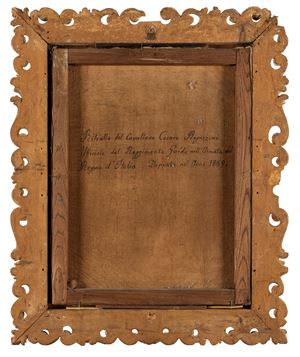 Ritratto del Cavaliere Cesare
Ufficiale del Reggimento Guardie nell'Armata del
Regno d'Italia. Dipinto nel Anno 1809.